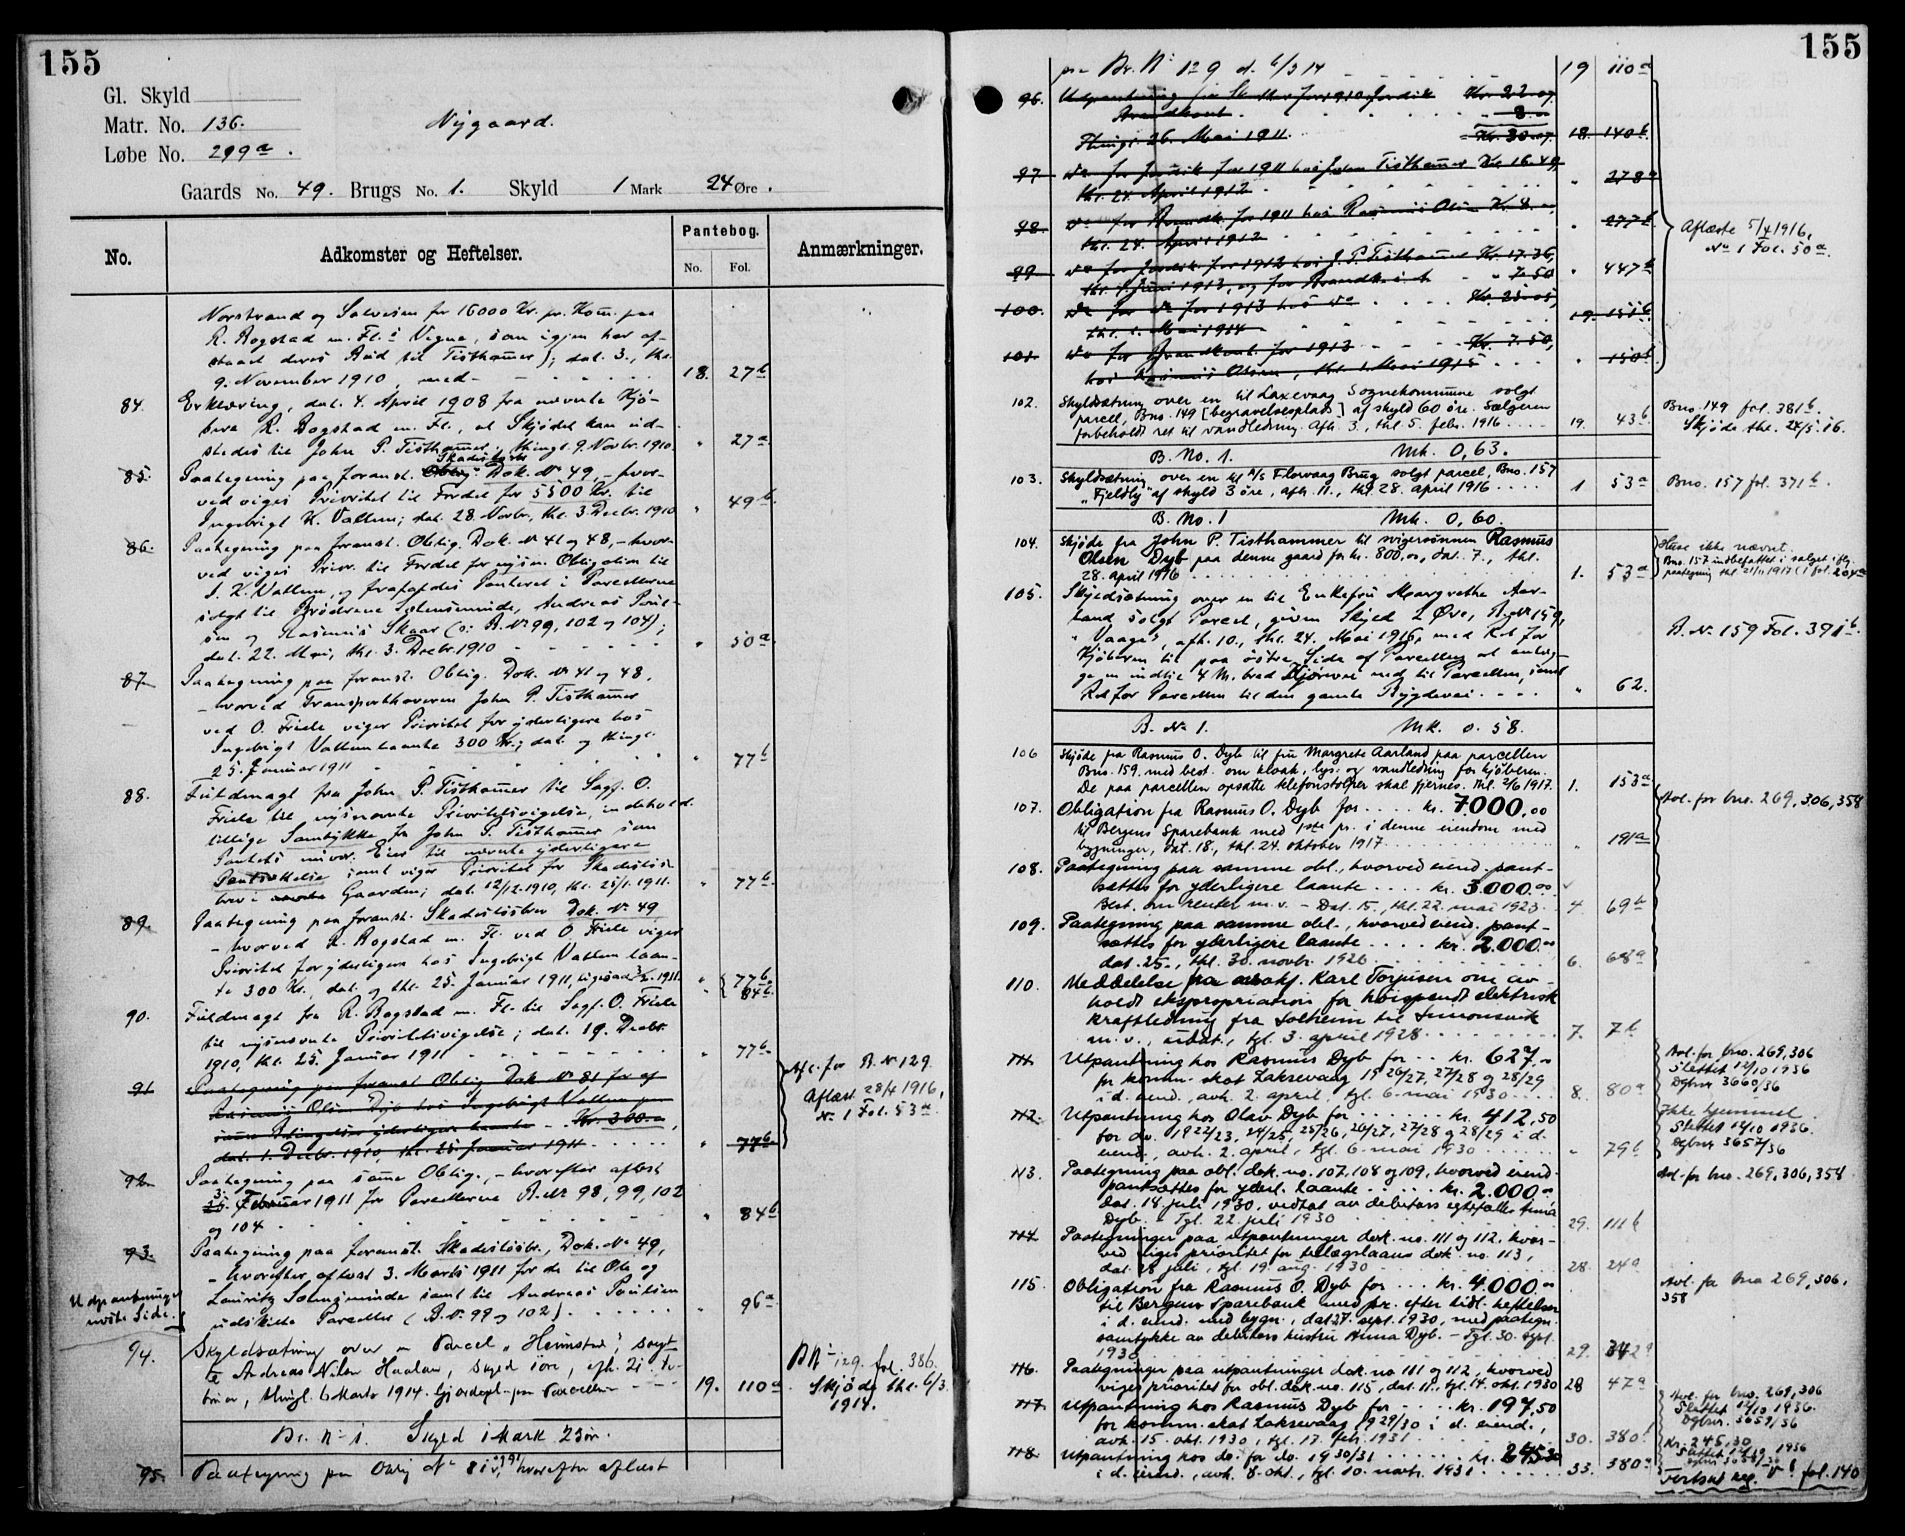 155
Gl. Skyld
Matr. No. 136.
Nygaard.
Løbe No. 299a.
Gaards No. 49. Brugs No. 1. Skyld 1 Mark 24 Øre.
No. Adkomster og Heftelser. Pantebog. No. Fol. Anmærkninger.
Norstrand og Salvesen for 16000 Kr. pr. Kom. paa
R. Bogstad m. Fl. i Vigne, som igjen har af-
staaet deres Bud til Tisthammer); dat. 3., thl.
9. November 1910, med - - - 18. 27b
84. Erklæring, dat. 4. April 1908 fra nævnte Kjø-
bere R. Bogstad m. Fl., at Skjødet kan ud-
stedes til John P. Tisthammer, thingl. 9. Novbr. 1910. " 27a
85. Paategning paa foranst. Skadesløsbr. Dok. No 49, - hvor-
ved viges Prioritet til Fordel for 5500 Kr. til
Ingebrigt K. Vallum; dat. 28. Novbr., thl. 3. Decbr. 1910 " 49b
86. Paategning paa foranst. Oblig. Dok. No 41 og 48, - hvor-
ved viges Prior. til Fordel for nysn. Obligation til
I. K. Vallum, og frafaldes Panteret i Parcellerne
solgt til Brødrene Salensminde, Andreas Poul-
sen og Rasmus Skaar (o: B. No 99, 102 og 104);
dat. 22. Mai, thl. 3. Decbr. 1910 " 50a
87. Paategning paa foranst. Oblig. Dok. No 41 og 48,
- hvorved Transporthaveren John P. Tisthammer
ved O. Friele viger Prioritet for yderligere hos
Ingebrigt Vallum laante 300 Kr.; dat. og thingl.
25. Januar 1911 " 77b
88. Fuldmagt fra John P. Tisthammer til Sagf. O.
Friele til nysnævnte Prioritetsvigelse, indehold.
tillige Samtykke fra John P. Tisthammer som
Pantets nuvær. Eier til nævnte yderligere
Pantsættelse samt viger Prioritet for Skadesløs-
brev i Gaarden; dat. 12/12 1910, thl. 25/1 1911. " 77b
89. Paategning paa foranst. Skadesløsbrev Dok. No 49
- hvorved R. Bogstad m. Fl. ved O. Friele viger
Prioritet for yderligere hos Ingebrigt Vallum laan-
te 300 Kr., dat. og thl. 25. Januar 1911, " 77b
" 84b
90. Fuldmagt fra R. Bogstad m. Fl. til Sagf. O. Friele
til nysnævnte Prioritetsvigelse; dat. 19. Decbr.
1910, thl. 25. Januar 1911 " 77b
91 Paategning paa foranst. Oblig. Dok. No 81 for af
Rasmus Olsen Dyb hos Ingebrigt Vallum paa
samme Betingelser yderligere laante - Kr. 300.-,
dat. 1. Decbr. 1910, thl. 25. Januar 1911 " 77b
Afl. for B. No 129.
Aflæst 28/4 1916,
No. 1 Fol. 53a.
92 Paategning paa samme Oblig., - hvorefter aflæst
Februar 1911 for Parcellerne B. No 98, 99, 102
og 104 " 84b
93. Paategning paa foranst. Skadesløsbr., Dok. No 49,
- hvorefter aflæst 3. Marts 1911 for de til Ole og
Lauritz Salensminde samt til Andreas Poulsen
udskilte Parceller (B. No 99 og 102) " 96a
Udpantninger
næste Side.
94. Skyldsætning over en Parcel "Heimstad", solgt
til Andreas Nilsen Haaland, skyld 1 øre, afh. 21 Fe-
bruar, thingl. 6 Marts 1914. Gjerdepl. paa Parcellen 19. 110a.
B No 129. fol. 386.
Skjøde thl. 6/3
1914.
Br. No 1. Skyld 1 Mark 23 øre.
95. Paategning paa Oblig No 81, hvorefter aflæst
155
fra Br. No 129 d. 6/3 14 19 110a
96. Udpantning for Skatter for 1910 Jordsk Kr. 22.07
Brandkont. 8.00
Thingl. 26. Mai 1911. Kr. 30.07. 18. 140b
97 Do for Jordsk for 1911 hos John Tisthammer Kr. 16.49,
thl. 24. April 1912 " 278a
98. Do for Brandk. for 1911 hos Rasmus Olsen Kr. 8.-,
thl. 24. April 1912 " 277b
99 Do for Jordsk. for 1912 hos J. P. Tisthammer Kr. 17.36,
thl. 1. Juni 1913, og for Brandk. i d. " 7.50 " 447b
100. Do for do for 1913 hos do Kr. 25.05,
thl. 1. Mai 1914 19. 151b
101 Do for Brandkont. for 1913 Kr. 7.50,
hos Rasmus Olsen, thl. 1. Mai 1915 " 150b
Aflæste 5/4 1916,
No 1 Fol. 50a.
102. Skyldsætning over en til Laxevaag Sognekommune solgt
parcel, Bno. 149 [begravelsesplads] af skyld 60 øre. Sælgeren
forbeholdt ret til vandledning. Afh. 3, thl. 5. febr. 1916 19. 43b
Bno. 149 fol. 381b.
Skjøde thl. 24/5 16.
B. No. 1. Mk. 0,63.
103. Skyldsætning over en til A/s Florvaag Brug solgt parcel, Bno. 157
"Fjeldly" af skyld 3 øre, afh. 11., thl. 28. april 1916 1 53a
Bno. 157 fol. 371b.
B. No. 1 Mk. 0,60.
104. Skjøde fra John P. Tisthammer til svigersønnen Rasmus
Olsen Dyb paa denne gaard for kr. 800,00, dat. 7., thl.
28. april 1916 1. 53a
Huse ikke nævnt.
Bno. 157 indbefattet i salget iflg.
paategning thl. 21/11 1917 (1 fol. 204a
105. Skyldsætning over en til Enkefru Margrethe Aar-
land solgt Parcel, given Skyld 2 Øre, B. No 159,
"Vaagen", afh. 10., thl. 24. Mai 1916, med Ret for
Kjøberen til paa østre Side af Parcellen at anlæg-
ge en indtil 4 M. bred Kjørevei ned til Parcellen, samt
Ret for Parcellen til den gamle Bygdevei " 62.
B. No 159 Fol. 391b.
B. No 1. Mk. 0.58.
106 Skjøde fra Rasmus O. Dyb til fru Margrete Aarland paa parcellen
Bno. 159. med best. om kloak, lys- og vandledning for kjøberen.
De paa parcellen opsatte telefonstolper skal fjernes. Thl. 2/6 1917. 1. 153a
107. Obligation fra Rasmus O. Dyb for kr. 7000,00
til Bergens Sparebank med 1ste pr. i denne eiendom med
bygninger, dat. 18., thl. 24. oktober 1917 " 191a
Avl. for bno. 269, 306, 358
108. Paategning paa samme obl., hvorved eiend. pant-
sættes for yderligere laante kr. 3.000.00
Best. om renter m.v. - Dat. 15., thl. 22. mai 1923. 4. 69b
109. Paategning paa samme obl., hvorved eiend. pant-
sættes for yderligere laante kr. 2.000.00
dat. 25., thl. 30. novbr. 1926 6. 68a
110. Meddelelse fra o.r.sakf. Karl Torjusen om av-
holdt ekspropriation for høispendt elektrisk
kraftledning fra Solheim til Simonsvik
m.v., udat., tgl. 3. april 1928 7. 7b
111. Utpantning hos Rasmus Dyb for kr. 627,-
for komm. skat Laksevaag 1926/27, 27/28 og 28/29
i d. eiend., avh. 2. april, tgl. 6. mai 1930 8. 80a
Avl. for bno. 269, 306
Slettet 12/10 1936
Dgbnr 3660/36
112. Utpantning hos Olav Dyb for kr. 412,50
for do. 1922/23, 24/25, 25/26, 26/27, 27/28 og 28/29 i d.
eiend., avh. 2. april, tgl. 6. mai 1930 " 79b
Ikke hjemmel.
Slettet 12/10 1936.
Dgbnr 3657/36
113. Paategning paa obl. dok. no. 107, 108 og 109, hvorved eiend.
pantsættes for yderl. laante kr. 2.000.00
Dat. 18. juli 1930, vedtat av debitors egtefælle Anna
Dyb. - Tgl. 22. juli 1930 29. 111b
Avl. for bno. 269, 306, 358
114 Paategninger paa utpantninger dok. no. 111 og 112, hvor-
ved viges prioritet for tillægslaans dok. no. 113,
dat. 28 juli, tgl. 19. aug. 1930 28. 24a
115. Obligation fra Rasmus O. Dyb for kr. 4.000.00
til Bergens Sparebank med pr. efter tidl. heftelser
i d. eiend. med bygn., dat. 27. sept. 1930, med paategn.
samtykke av debitors hustru Anna Dyb. - Tgl. 30. sept.
1930 29. 342a
Avl. for bno 269, 306,
358
116. Paategninger paa utpantninger dok. no 111 og 112, hvorved
viges prioritet for obl. dok. no. 115, dat. 11., tgl. 14. okt. 1930 28 47a
117. Utpantning hos Rasmus Dyb for kr. 197,50
for komm. skat Laksevaag 1929/30 i d. eiend.,
avh. 15. okt. 1930, tgl. 17. febr. 1931 30. 380b
Avl. for bno. 269, 306
Slettet 12/10 1936.
Dgbnr. 3659/36
118. Utpantning hos do. for do. 1930/31 kr. 245.30
i d. eiend., avh. 8. okt., tgl. 10. novbr. 1931 33. 380a
Kr. 245.30
Slettet 12/10 1936
Fortsat reg. V fol. 140